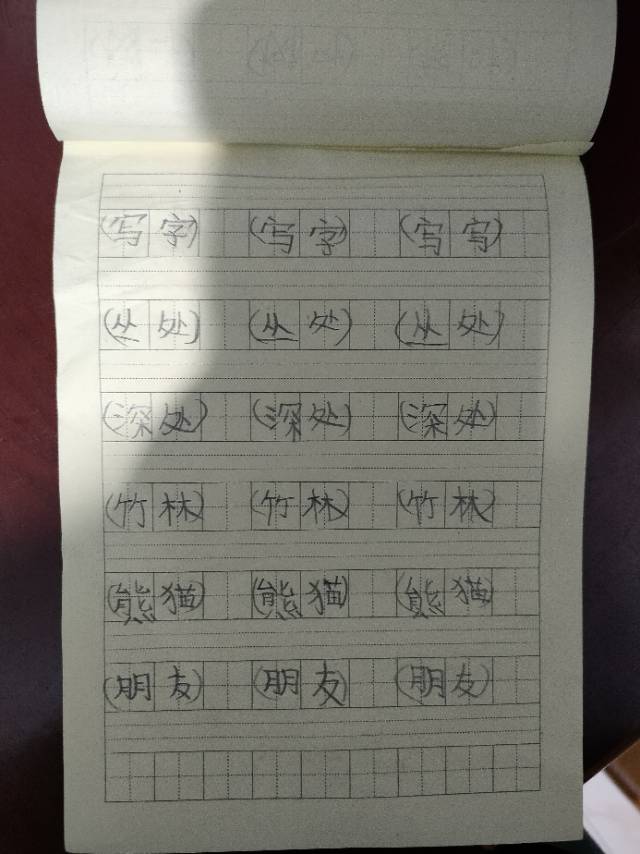 (写字) (写字) (写写)
(丛处) (丛处) (丛处)
(深处) (深处) (深处)
(竹林) (竹林) (竹林)
(熊猫) (熊猫) (熊猫)
(朋友) (朋友) (朋友)